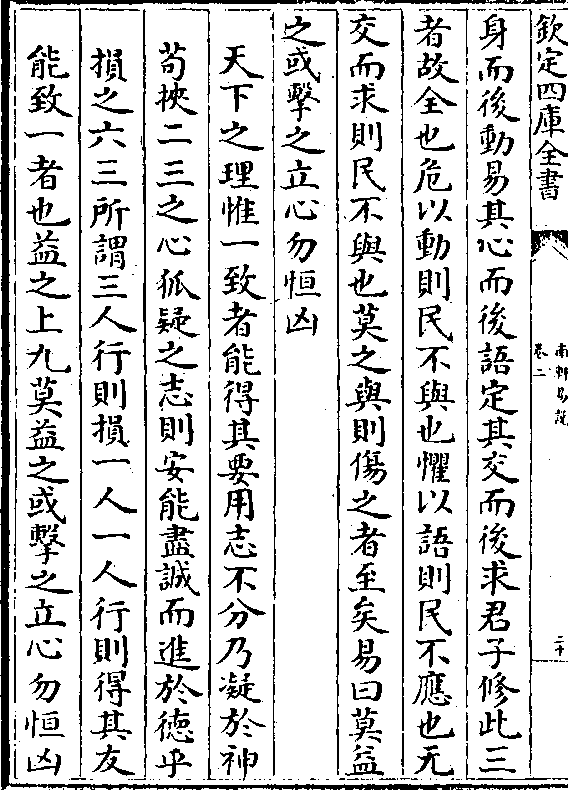 欽定四庫全書
南軒易説
卷二
二十
身而後動易其心而後語定其交而後求君子修此三
者故全也危以動則民不與也懼以語則民不應也无
交而求則民不與也莫之與則傷之者至矣易曰莫益
之或擊之立心勿恒凶
天下之理惟一致者能得其要用志不分乃凝於神
苟挾二三之心狐疑之志則安能盡誠而進於德乎
損之六三所謂三人行則損一人一人行則得其友
能致一者也益之上九莫益之或擊之立心勿恒凶